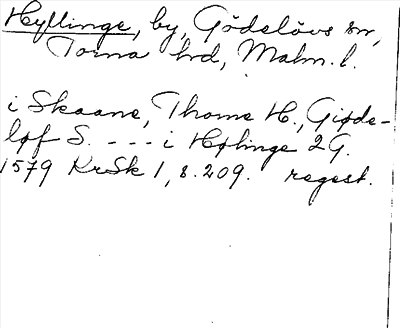 Hyllinge, by, Gödelövs sn,
Torna hd, Malm. l.
i Skaane, Thorne H., Giøde-
løf S. --- i Hølinge 2 G.
1579 KrSk 1, s. 209. regest.